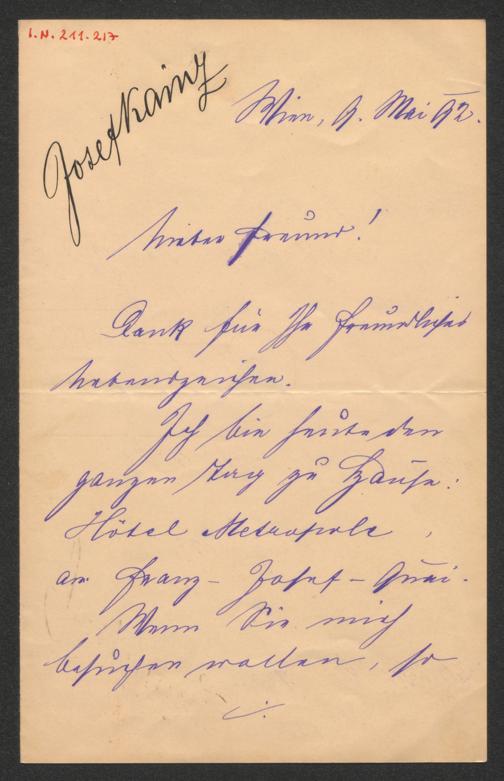 I.N. 211.217
Josef Kainz
Wien, 9. Mai 92.
Lieber Freund!
Dank für Ihr freundliches
Lebenszeichen.
Ich bin heute den
ganzen Tag zu Hause:
Hôtel Metropole,
am Franz-Josef-Quai.
Wenn Sie mich
besuchen wollen, so
./.